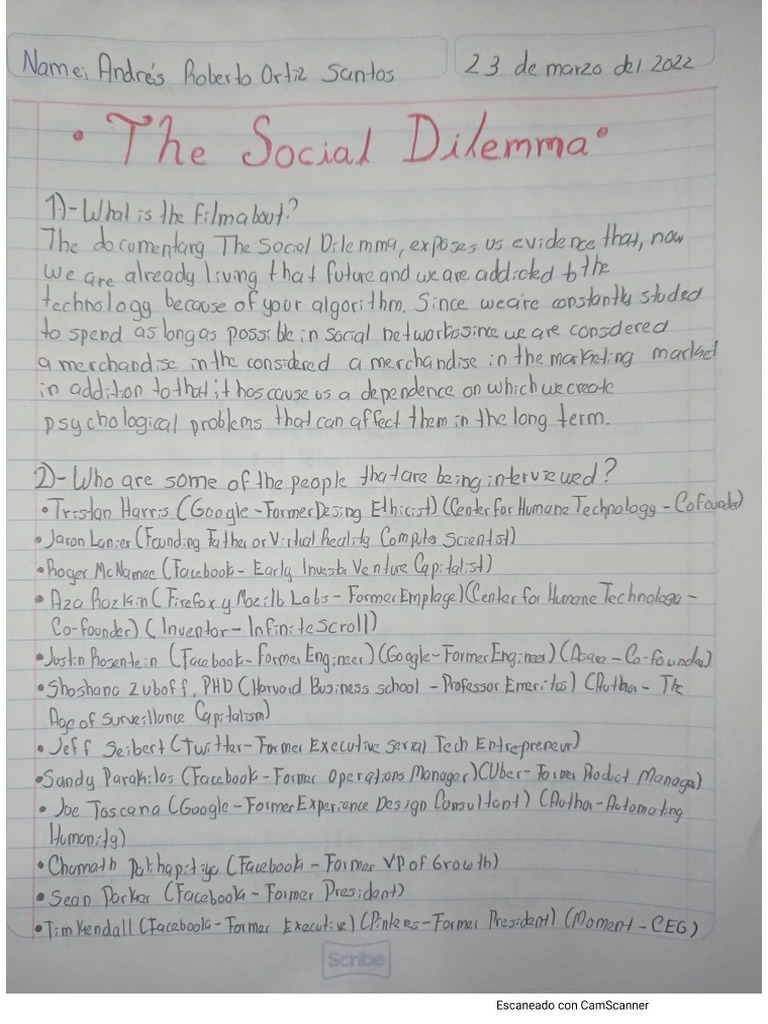 Name: Andrés Roberto Ortiz Santos
23 de marzo del 2022
• The Social Dilemma •
1)-What is the film about?
The documentary The Social Dilemma, exposes us evidence that, now
we are already living that future and we are addicted to the
technology because of your algorithm. Since we are constantly studed
to spend as long as possible in social networks since we are consdered
a merchandise in the considered a merchandise in the marketing market
in addition to that it has cause us a dependence on which we create
psychological problems that can affect them in the long term.
2)-Who are some of the people that are being interviewed?
• Tristan Harris (Google-Former Desing Ethicist) (Center for Humane Technology-CoFounder)
• Jaron Lanier (Founding Father or Virtual Reality Computer Scientist)
• Roger McNamee (Facebook-Early Investor Venture Capitalist)
• Aza Razkin (Firefox y Mozilla Labs-Former Employee) (Center for Humane Technology-
Co-founder) (Inventor-Infinite Scroll)
• Justin Rosentein (Facebook-Former Engineer) (Google-Former Engineer) (Co-founder)
• Shoshana Zuboff, PHD (Harvard Business school-Professor Emeritus) (Author-The
Age of Surveillance Capitalism)
• Jeff Seibert (Twitter-Former Executive Serial Tech Entrepreneur)
• Sandy Parakilas (Facebook-Former Operations Manager) (Uber-Former Product Manager)
• Joe Toscana (Google-Former Experience Design Consultant) (Author-Automating
Humanity)
• Chamath Palihapitiya (Facebook-Former VP of Growth)
• Sean Parker (Facebook-Former President)
• Tim Kendall (Facebook-Former Executive) (Former President) (Moment-CEO)
Scribe
Escaneado con CamScanner